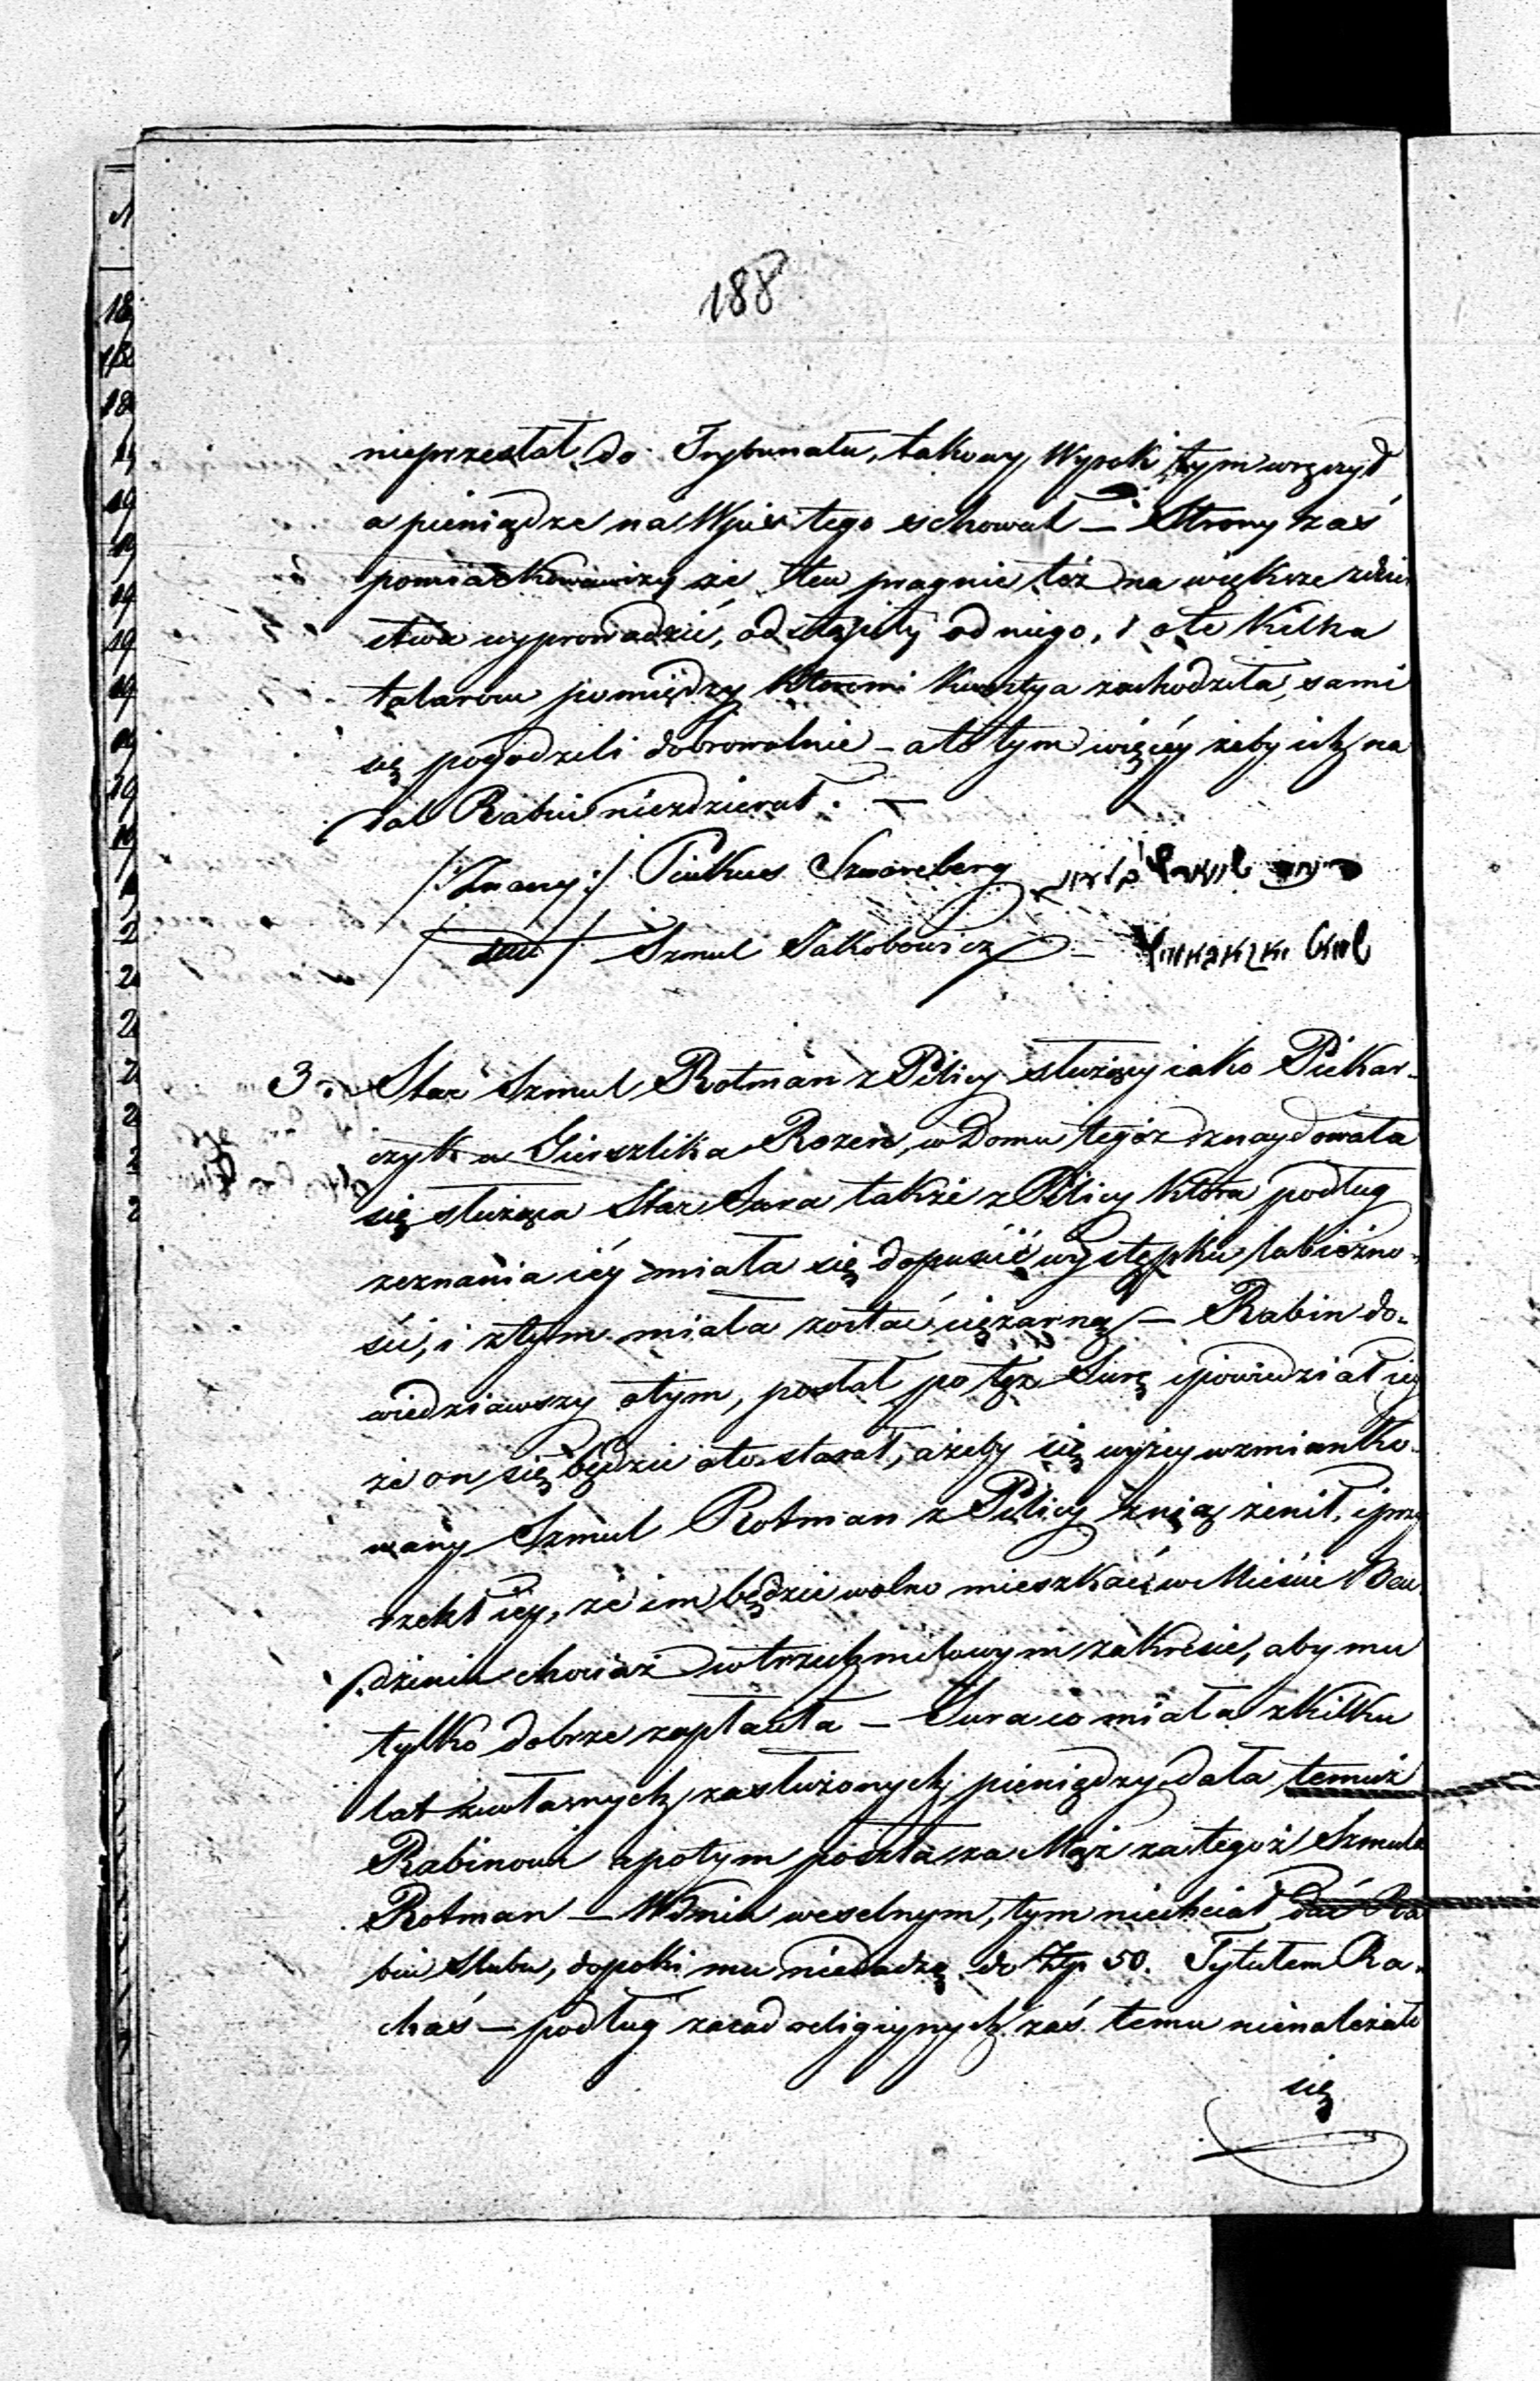 188
nieprzesłał do Trybunału, takowy Wyrok tym
a pieniądze na Wpis tego schował — Strony zaś
pomiarkowawszy że ten pragnie też na większe zdzier
stwa wyprowadzić, odstąpiły od niego, i o te kilka
talarow pomiędzy ktoremi kwestya zachodziła, sami
się pogodzili dobrowolnie — a to tym więcéy żeby ich na
dal Rabin niezdzierał. —
/:Znany:/ Pinkus Szwarcberg
Szmul Jakobowicz —
3. Star Szmul Rotman z Pilicy służący iako Piekar-
czyk u Gierszlika Rozen, w Domu tegoż znaydowała
się służąca Star Sura także z Pilicy która podług
zeznania iéy miała się dopuścić występku lubieżno-
ści, i ztym miała zostać ciężarną — Rabin do-
wiedziawszy otym, posłał po tęż Surę i powiedział iey
że on się będzie oto starał, ażeby się wyżey wzmianko-
wany Szmul Rotman z Pilicy znią żenił, i przy
rzekł iéy, że im będzie wolno mieszkać w Mieście Ben
dzinie chociaż w trzechmilowym zakresie, aby mu
tylko dobrze zapłaciła — Sura co miała z kilku
lat zwłasnych zasłużonych pieniędzy dała temuż
Rabinowi a potym poszła za Mąż za tegoż Szmula
Rotman — W Dniu weselnym, tym niechciał dać Ra
bin ślubu, dopoki mu niedadzą do Złp 50. Tytułem Ra-
chaś — podług zasad religiynych zaś temu nienależało
się